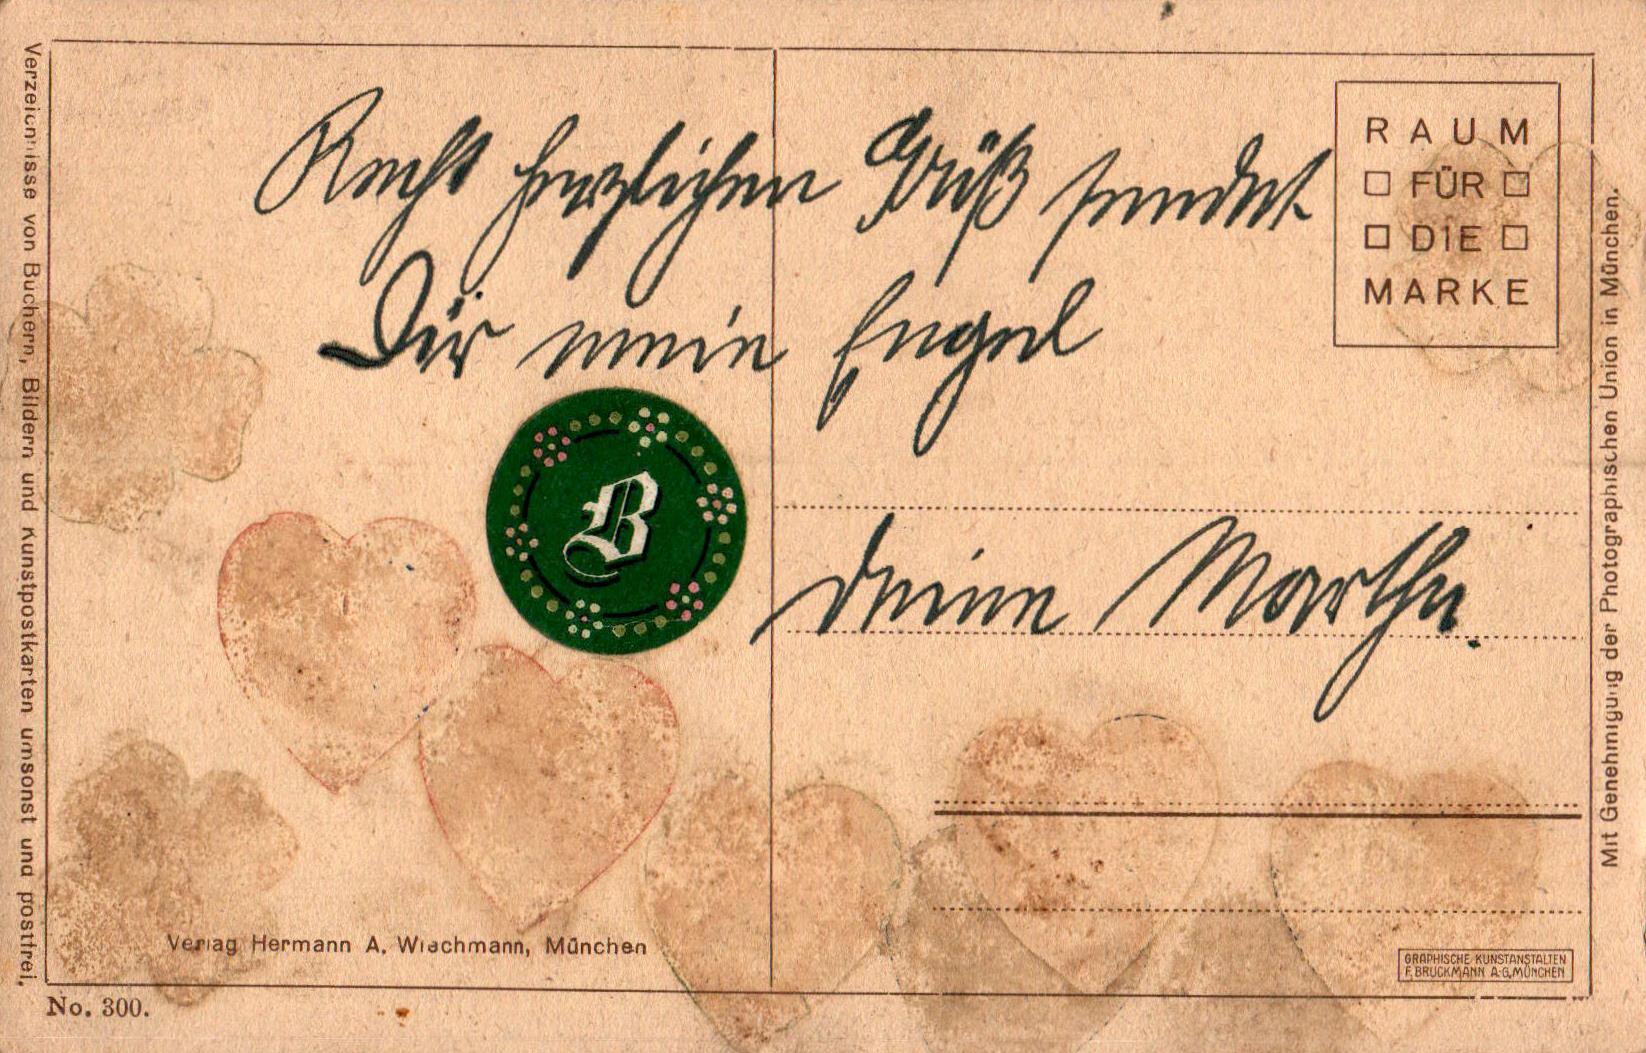 Recht herzlichen Grüß sendet
Dir mein Engel
deine Marthe.
B
RAUM
FÜR
DIE
MARKE
Verzeichnisse von Büchern, Bildern und Kunstpostkarten umsonst und postfrei.
Mit Genehmigung der Photographischen Union in München.
Verlag Hermann A. Wiechmann, München
No. 300.
GRAPHISCHE KUNSTANSTALTEN
F. BRUCKMANN A-G, MÜNCHEN